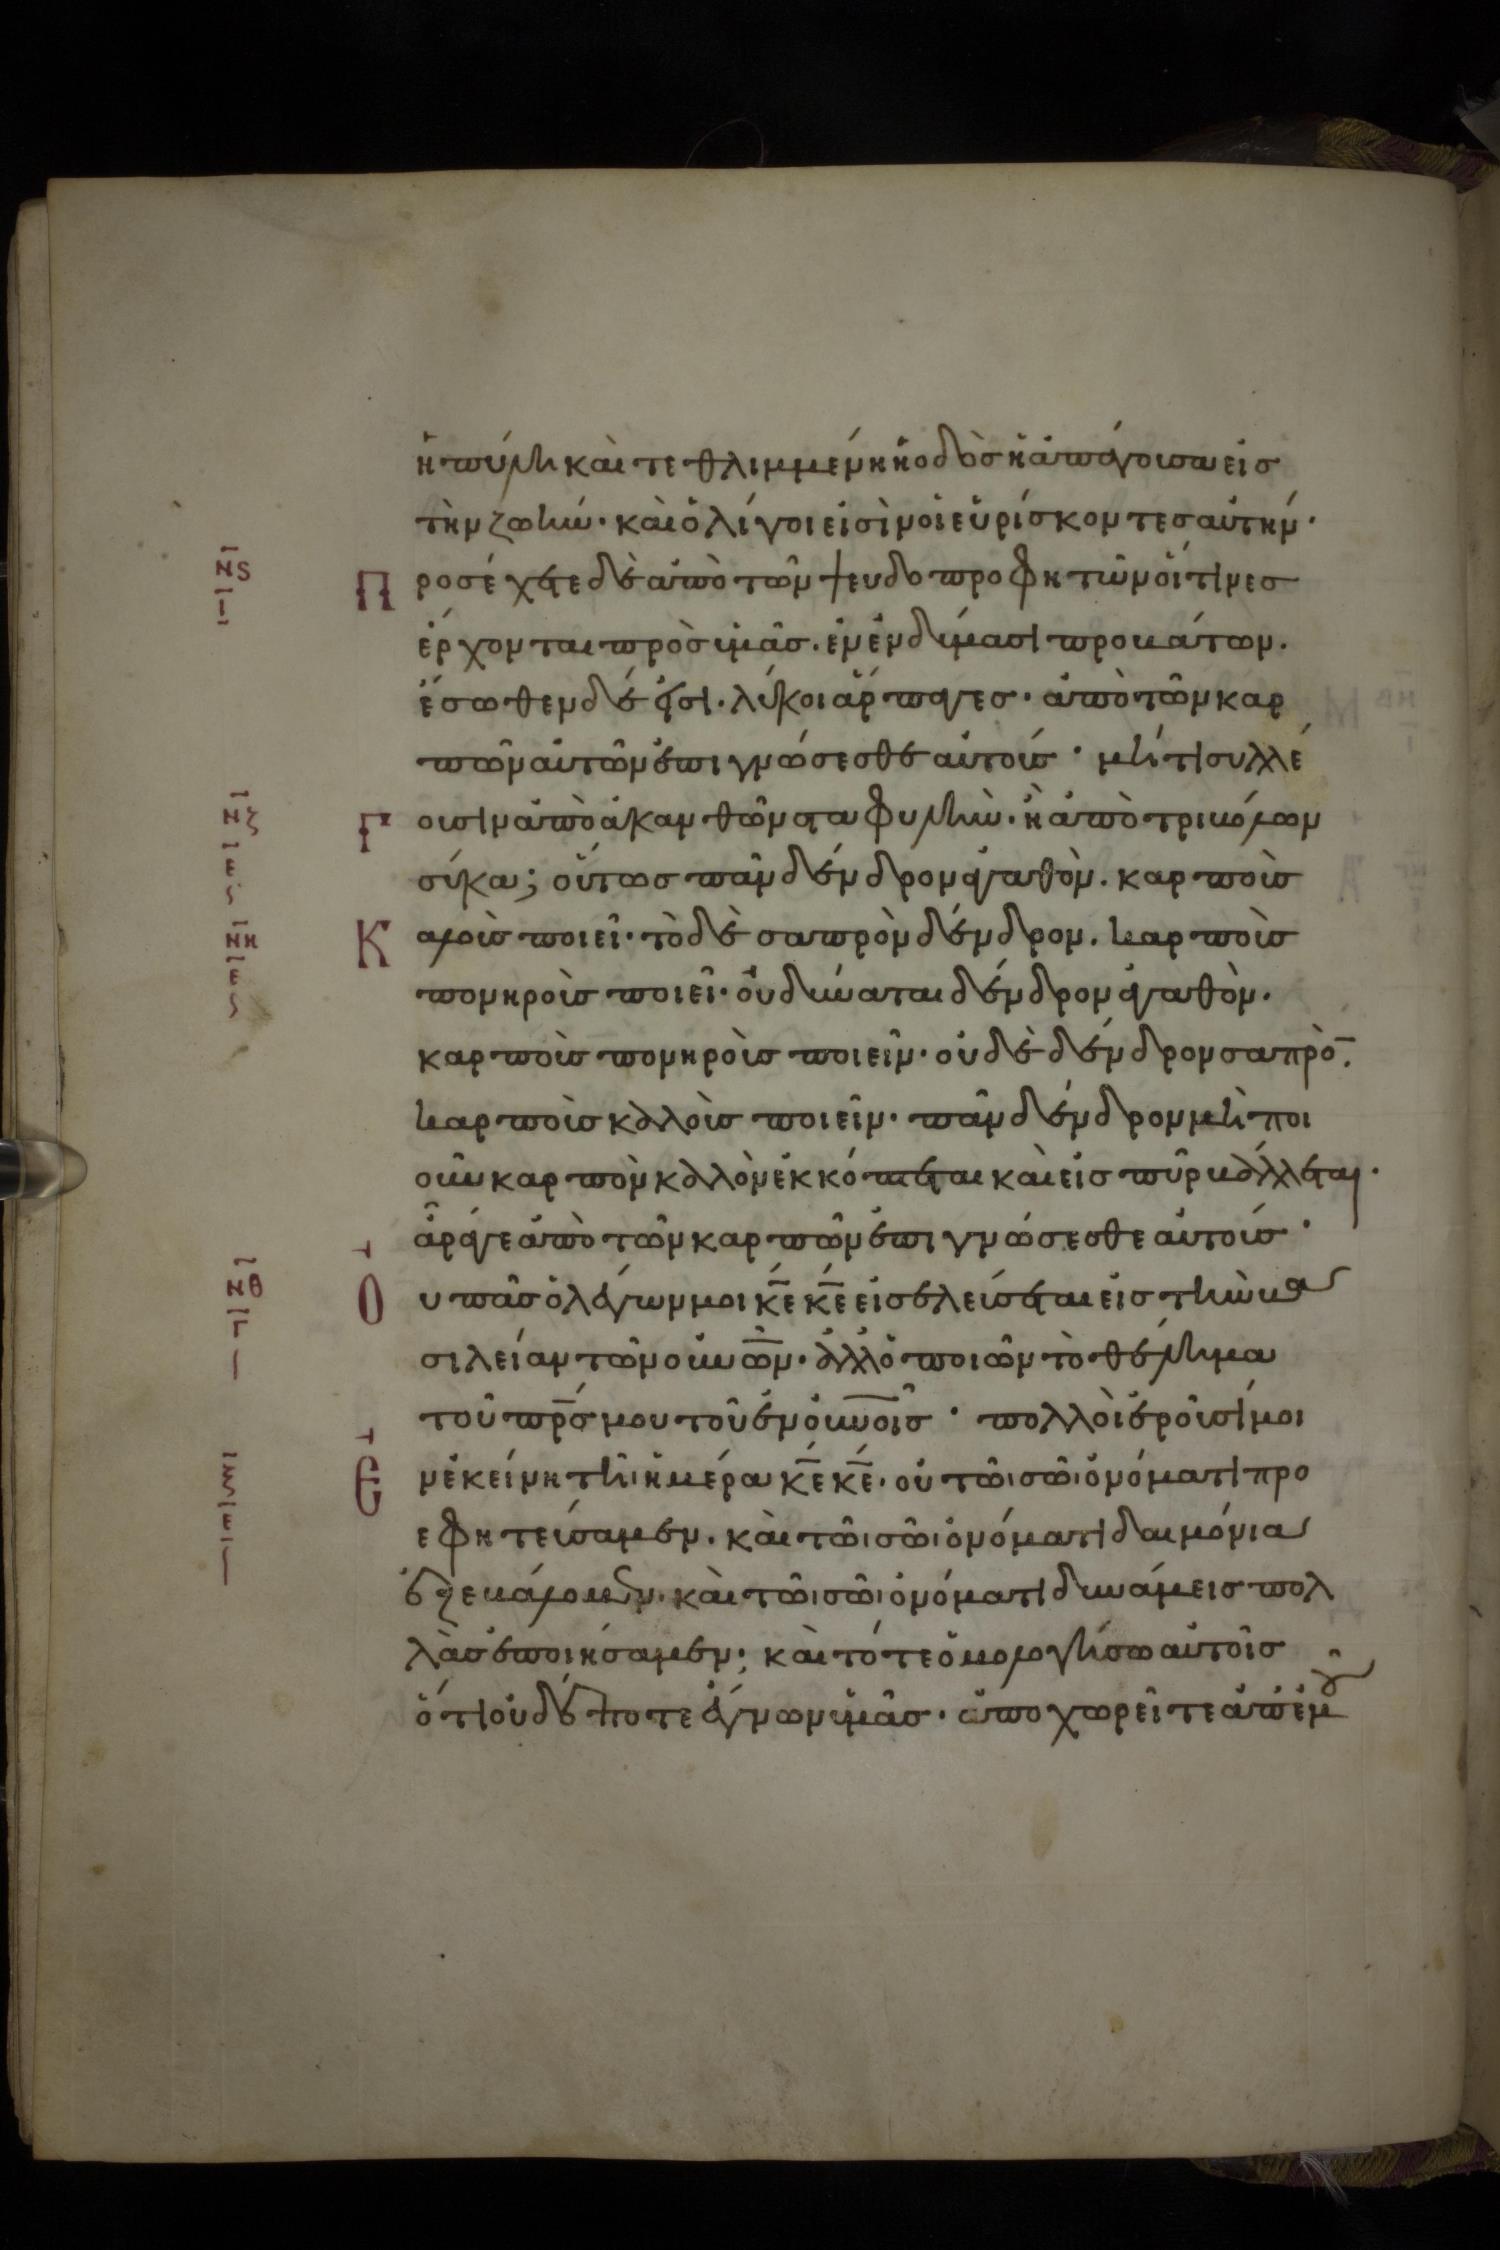 ἡ πύλη καὶ τεθλιμμένη ἡ οδὸσ ἡ ἀπάγουσα εἰσ
τὴν ζωὴν· καὶ ὀλίγοι εἰσὶν οἱ εὑρίσκοντεσ αὐτήν·
Προσέχετε δὲ ἀπὸ τῶν ψευδοπροφητῶν οἵτινεσ
ἔρχονται πρὸσ ὑμᾶσ. ἐν ἐνδύμασι προβάτων.
ἔσωθεν δέ εἰσι. λύκοι ἅρπαγεσ. ἀπὸ τῶν καρ
πῶν αὐτῶν ἐπιγνώσεσθε αὐτούσ· μήτι συλλέ
Γουσιν ἀπὸ ἀκανθῶν σταφυλὴν. ἢ ἀπὸ τριβόλων
σύκα; οὕτωσ πᾶν δένδρον ἀγαθὸν. καρποὺσ
Καλοὺσ ποιεῖ· τὸ δὲ σαπρὸν δένδρον. καρποὺσ
πονηροὺσ ποιεῖ· οὐ δύναται δένδρον ἀγαθὸν.
καρποὺσ πονηροὺσ ποιεῖν· οὐδὲ δένδρον σαπρὸ̄.
καρποὺσ καλοὺσ ποιεῖν· πᾶν δένδρον μὴ ποι
οῦν καρπὸν καλὸν ἐκκόπτεται καὶ εἰσ πῦρ βάλλεται.
ἆραγε ἀπὸ τῶν καρπῶν ἐπιγνώσεσθε αὐτούσ·
Ου πᾶσ ὁ λέγων μοι κ̅ε̅ κ̅ε̅ εἰσελεύσεται εἰσ τὴν βα
σιλείαν τῶν οὐν̅ω̅ν̅. ἀλλ ὁ ποιῶν τὸ θέλημα
τοῦ π̅ρ̅σ̅ μου τοῦ ἐν οὐν̅ο̅ι̅σ̅· πολλοὶ ἐροῦσί μοι
Εν ἐκείνη τῆι ἡμέρα κ̅ε̅ κ̅ε̅. οὐ τῶι σῶι ὀνόματι προ
εφητεύσαμεν. καὶ τῶι σῶι ὀνόματι δαιμόνια
ἐξεβάλομεν. καὶ τῶι σῶι ὀνόματι δυνάμεισ πολ
λὰσ ἐποιήσαμεν; καὶ τότε ὁμολογήσω αὐτοῖσ
ὅτι οὐδέποτε ἔγνων ὑμᾶσ. ἀποχωρεῖτε ἀπ ἐμοῦ
ΝϚ
Ι
ΝΖ
Ε
ΝΗ
Ε
ΝΘ
Γ
Ξ
Ε